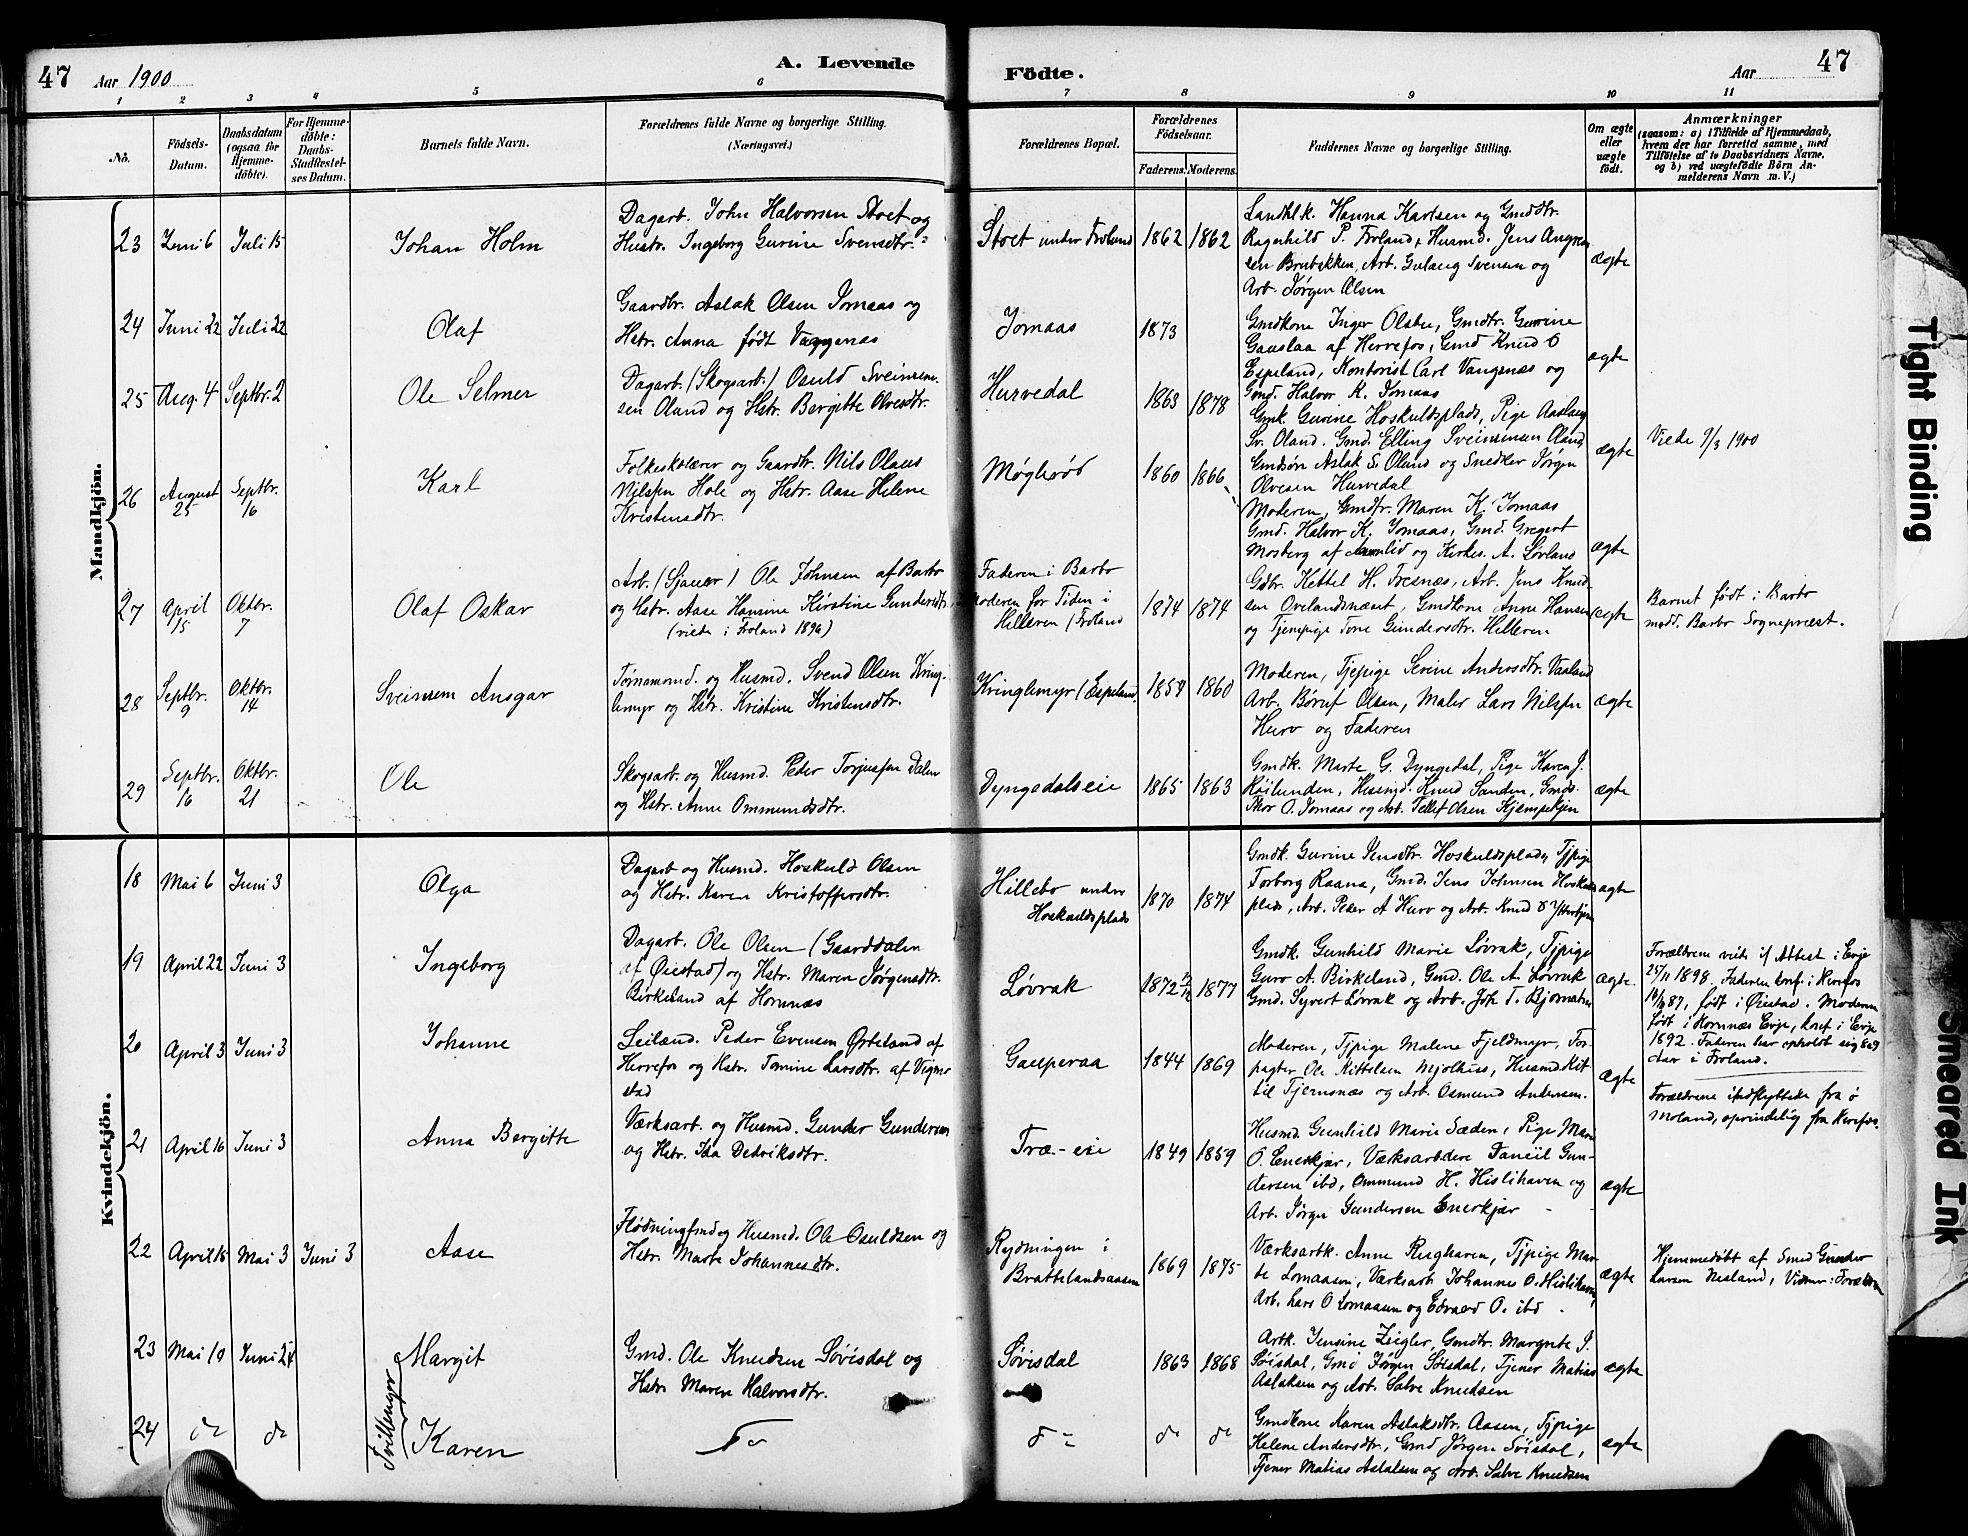 47 Aar 1900
A. Levende
Födte.
Aar 47
1 2 3 4 5 6 7 8 9 10 11
No.
Födsels-
Datum.
Daabsdatum
(ogsaa for
Hjemme-
döbte).
For Hjemme-
döbte:
Daabs-
Stadfæstel-
ses Datum.
Barnets fulde Navn.
Forældrenes fulde Navne og borgerlige Stilling.
(Næringsvei.)
Forældrenes Bopæl.
Forældrenes
Födselsaar.
Faderens. Moderens.
Faddernes Navne og borgerlige Stilling.
Om ægte
eller
uægte
födt.
Anmærkninger
(saasom: a) i Tilfælde af Hjemmedaab,
hvem der har forrettet samme, med
Tilföielse af to Daabsvidners Navne,
og b) ved uægtefödte Börn An-
melderens Navn m. V.)
Mandkjön.
23 Juni 6 Juli 15
Johan Holm
Dagarb. John Halvorsen Stoet og
Hustr. Ingeborg Gurine Svensdtr.
Stoet under Froland
1862 1862
Landhlk. Hanna Karlsen og Gmddtr.
Ragnhild P. Froland, Husmd. Jens
sen Brubakken, Arb. Gulaug Svensen og
Arb. Jørgen Olsen
ægte
24 Juni 22 Juli 22
Olaf
Gaardbr. Aslak Olsen Jomaas og
Hstr. Anna født
Jomaas
1873
Gmdkone Inger Olsbu, Gmdtr. Gurine
Gauslaa af Herrefos, Gmd Knud O
Espeland, Kontorist Carl Vangsnæs og
Gmd. Halvor K. Jomaas
ægte
25 Aug. 4 Septbr. 2
Ole Selmer
Dagarb. (Skogsarb.) Osuld Sveinsen-
sen Oland og Hstr. Bergitte Olvesdtr.
Hurvedal
1863 1878
Gmk. Gurine Hoskuldsplads, Pige Aaslaug
Sv. Oland. Gmd. Elling Sveinsensen Oland,
Gmdsøn Aslak S. Oland og Snedker Jørgen
Olvesen Hurvedal
ægte
Viede 9/3 1900
26 August
25
Septbr.
16
Karl
Folkeskolærer og Gaardbr. Nils Olaus
Nilssen Hole og Hstr. Aase Helene
Kristensdtr.
Møglerød
1860 1866
Moderen, Gmdfr. Maren K. Jomaas
Gmd. Halvor K. Jomaas, Gmd. Gregert
Mosberg af Aamlid og Kirkes. A. Løvland
ægte
27 April
15
Oktbr.
7
Olaf Oskar
Arb. (Sjauer) Ole Johnsen af Barbo
og Hstr. Aase Hansine Kirstine Gundersdtr.
(viede i Froland 1896)
Faderen i Barbo
Moderen for Tiden i
Helleren (Froland
1874 1874
Gdbr. Kettel H. Tresnæs, Arb. Jens Knud-
sen Ovelandsnæset, Gmdkone Anne Hansen
og Tjenpige Tone Gundersdtr. Helleren
ægte
Barnet født i Barbo
medd. Barbo Sognepræst.
28 Septbr.
9
Oktbr.
14
Sveinsem Ansgar
Tømmermd. og Husmd. Svend Olsen Kring-
lemyr og Hstr. Kristine Kristensdtr.
Kringlemyr (Espeland
1854 1860
Moderen, Tjepige Serine Andersdtr. Vaaland
Arb. Børuf Olsen, Maler Lars Nilssen
Hurv og Faderen
ægte
29 Septbr.
16
Oktbr.
21
Ole
Skogsarb. og Husmd. Peder Torjussen Dalen
og Hstr. Anne Ommundsdtr.
Dyngedalseie
1865 1863
Gmdk. Marte G. Dyngedal, Pige Karen J.
Røilunden, Husmd. Knud Sanden, Gmds.
Thor O. Jomaas og Arb. Tellef Olsen Kjempekjen
ægte
Kvindekjön.
18 Mai 6 Juni 3
Olga
Dagarb og Husmd. Hoskuld Olsen
og Hstr. Karen Kristoffersdtr.
Hillebo under
Hoskuldsplads
1870 1874
Gmdk. Gurine Jensdtr. Hoskuldsplads, Tjpige
Torborg Raana, Gmd. Jens Johnsen Hoskulds
plads, Arb. Peder A Hurv og Arb. Knud
ægte
19 April 22 Juni 3
Ingeborg
Dagarb. Ole Olsen (Gaarddalen
af Øiestad) og Hstr. Maren Jørgensdtr.
Birkeland af Hornnæs
Løvrak
1872 1877
Gmdk. Gunhild Marie Løvrak, Tjpige
Guro A. Birkeland, Gmd. Ole A. Løvrak
Gmd. Syvert Løvrak og Arb. Joh T. Bjornatn
ægte.
Forældrene viede if Attest i Evje
25/11 1898. Faderen konf. i Herefos
87, født i Øiestad. Moderen
født i Hornnæs Evje, konf i Evje
1892. Faderen har opholdt sig
Aar i Froland.
20 April 3 Juni 3
Johanne
Leilænd. Peder Evensen Ørteland af
Herrefos og Hstr. Tomine Larsdtr. af Vigmo
stad
Gauperaa
1844 1869
Moderen, Tjpige Malene Fjeldmyr, For-
pagter Ole Kittelsen Mjølhus, Husmd. Kit-
til Tjernsnæs og Arb. Osmund Andersen.
ægte
Forældrene indflyttede fra Ø
Moland, oprindelig fra Herefos.
21 April 16 Juni 3
Anna Bergitte
Værksarb. og Husmd. Gunder Gundersen
og Hstr. Ida Dedriksdtr.
Træ-eie
1849 1859
Husmd. Gunhild Marie Sæden, Pige Mari
O. Enerkjær, Værksarbdere Taneiil Gun-
dersen ibd, Ommund H. Hislihaven og
Arb. Jørgn Gundersen Enerkjær
ægte
22 April 15 Mai 3 Juni 3
Aase
Fløtningsfmd og Husmd. Ole Osuldsen og
Hstr. Marte Johannesdtr.
Rydningen i
Brattelandsaasen
1869 1875
Værksarbk. Anne Rughaven, Tjpige Mar-
te Lomaasen, Værksarb Johannes O. Hislihaven,
Arb. Lars O Lomaasen og Edvard O. ibd
ægte
Hjemmedøbt af Smed Gunder
Larsen Nesland, Vidner: Forældren
23 Mai 19 Juni 24
Tvillinger
Margit
Gmd. Ole Knudsen Søvisdal og
Hstr. Maren Halvorsdtr.
Søvisdal
1863 1868
Arbk. Jensine Ziegler, Gmdtr. Margrete J.
Søisdal, Gmd Jørgen Søisdal, Tjener Matias
Aslaksen og Arb. Salve Knudsen
ægte
24 do do
Karen
do
do
do do
Gmdkone Karen Aslaksdtr. Aasen, Tjpige
Helene Andersdtr., Gmd Jørgen Søisdal,
Tjener Matias Aslaksen og Arb. Salve Knudsen
ægte
Tight Binding
Smeared Ink